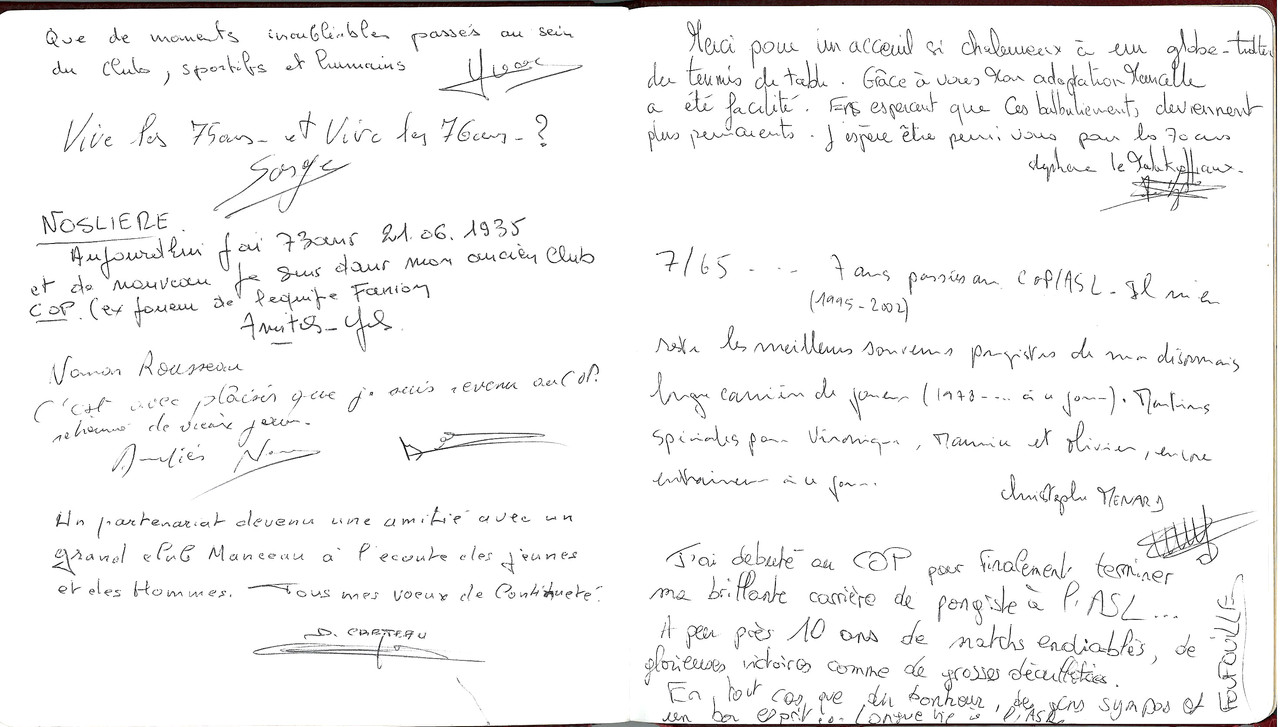 Que de moments inoubliables passés au sein
du Club, sportifs et humains
Vive les 75ans - et Vive les 76ans - ?
Serge
NOSLIERE
Aujourd'hui j'ai 73ans 21.06.1935
et de nouveau je suis dans mon ancien Club
COP. (ex joueur de l'equipe Fanion
Amitiés -
Rousseau
C'est avec plaisir que je suis revenu au COP.
de vieux
Amitiés
Un partenariat devenu une amitié avec un
grand club Manceau à l'ecoute des jeunes
et des Hommes. Tous mes voeux de Continueté.
D. CARTEAU
Merci pour un acceuil si chaleureux à un globe-trotter
du tennis de table. Grâce à vous Mon adaptation Mancelle
a été facilité. En esperent que Ces balbutiements deviennent
plus permanents. J'espère être parmi vous pour les 70 ans
stephane le
7/65 .... 7 ans passées au COP/ASL - Il m'en
(1995-2002)
reste les meilleurs souvenirs pongistes de ma désormais
longue carrière de joueur (1978 .... à ce jour). Mentions
spéciales pour Véronique, Maurice et Olivier, encore
entraineur à ce jour..
Christophe MENARD
J'ai débuté au COP pour finalement terminer
ma brillante carrière de pongiste à l'ASL...
A peu près 10 ans de matchs endiablés, de
glorieuses victoires comme de grosses déculottées.
En tout cas que du bonheur, des gens sympas et
un bon esprit. Longue vie à l'ASL
FOUFOUILLE